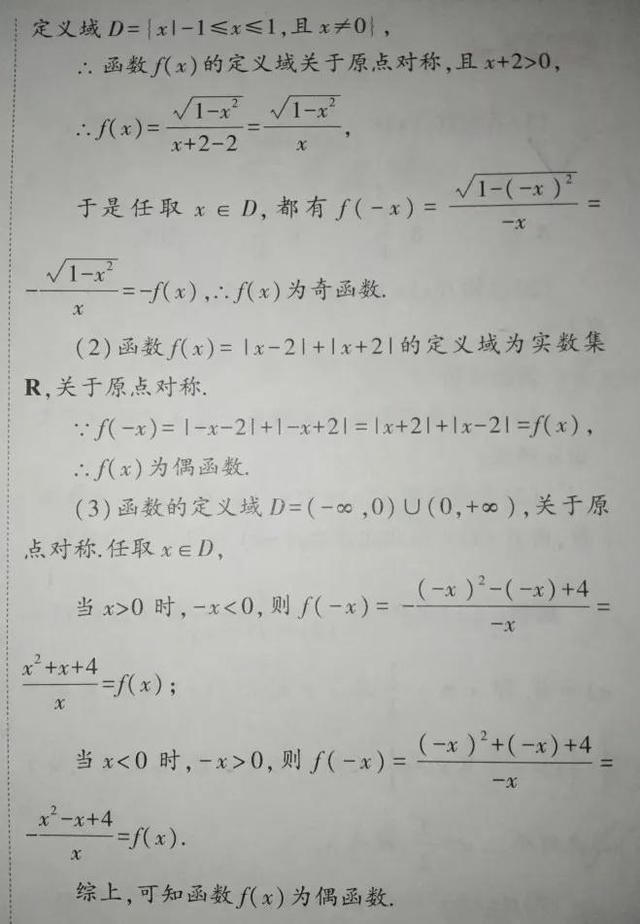 定义域D={x|-1≤x≤1,且x≠0},
∴函数f(x)的定义域关于原点对称,且x+2>0,
∴f(x)=\frac{\sqrt{1-x^2}}{x+2-2}=\frac{\sqrt{1-x^2}}{x},
于是任取 x∈D,都有 f(-x)=\frac{\sqrt{1-(-x)^2}}{-x}=
-\frac{\sqrt{1-x^2}}{x}=-f(x),∴f(x)为奇函数.
(2)函数f(x)=|x-2|+|x+2|的定义域为实数集
R,关于原点对称.
∵f(-x)=|-x-2|+|-x+2|=|x+2|+|x-2|=f(x),
∴f(x)为偶函数.
(3)函数的定义域D=(-∞,0)∪(0,+∞),关于原
点对称.任取x∈D,
当x>0时,-x<0,则f(-x)=-\frac{(-x)^2-(-x)+4}{-x}=
\frac{x^2+x+4}{x}=f(x);
当x<0时,-x>0,则f(-x)=\frac{(-x)^2+(-x)+4}{-x}=
-\frac{x^2-x+4}{x}=f(x).
综上,可知函数f(x)为偶函数.